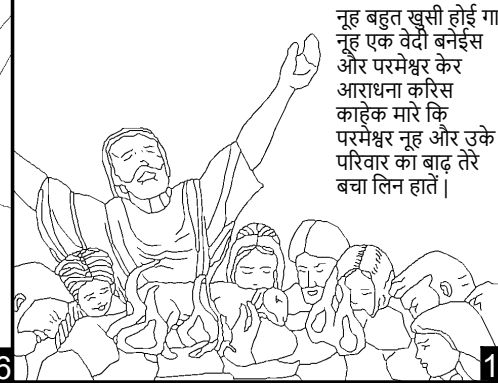 नूह बहुत खुसी होई गा
नूह एक वेदी बनेईस
और परमेश्वर केर
आराधना करिस
काहेक मारे कि
परमेश्वर नूह और उके
परिवार का बाढ़ तेरे
बचा लिन हातें |
6
1